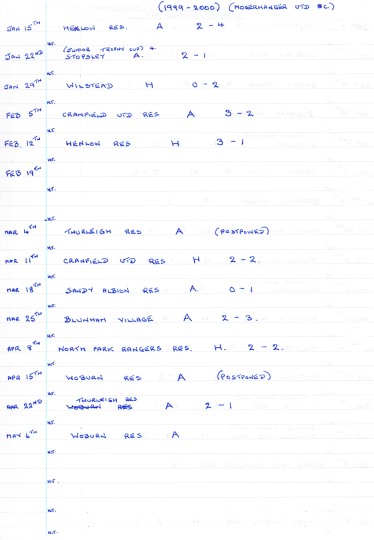 (1999-2000) (MOGERHANGER UTD F.C.)
JAN 15TH HENLOW RES. A 2 - 4
H.T.
(JUNIOR TROPHY CUP) 4.
JAN 22ND STOPSLEY A. 2 - 1
H.T.
JAN 29TH WILSTEAD H 0 - 2
H.T.
FEB 5TH CRANFIELD UTD RES A 3 - 2
H.T.
FEB. 12TH HENLOW RES H 3 - 1
H.T.
FEB 19TH
H.T.
H.T.
MAR 4TH THURLEIGH RES A (POSTPONED)
H.T.
MAR 11TH CRANFIELD UTD RES H 2 - 2.
H.T.
MAR 18TH SANDY ALBION RES A. 0 - 1
H.T.
MAR 25TH BLUNHAM VILLAGE A 2 - 3.
H.T.
APR 8TH NORTH PARK RANGERS RES. H. 2 - 2.
H.T.
APR 15TH WOBURN RES A (POSTPONED)
H.T.
THURLEIGH RES
APR 22ND WOBURN RES A 2 - 1
H.T.
MAY 6TH WOBURN RES A
H.T.
H.T.
H.T.
H.T.